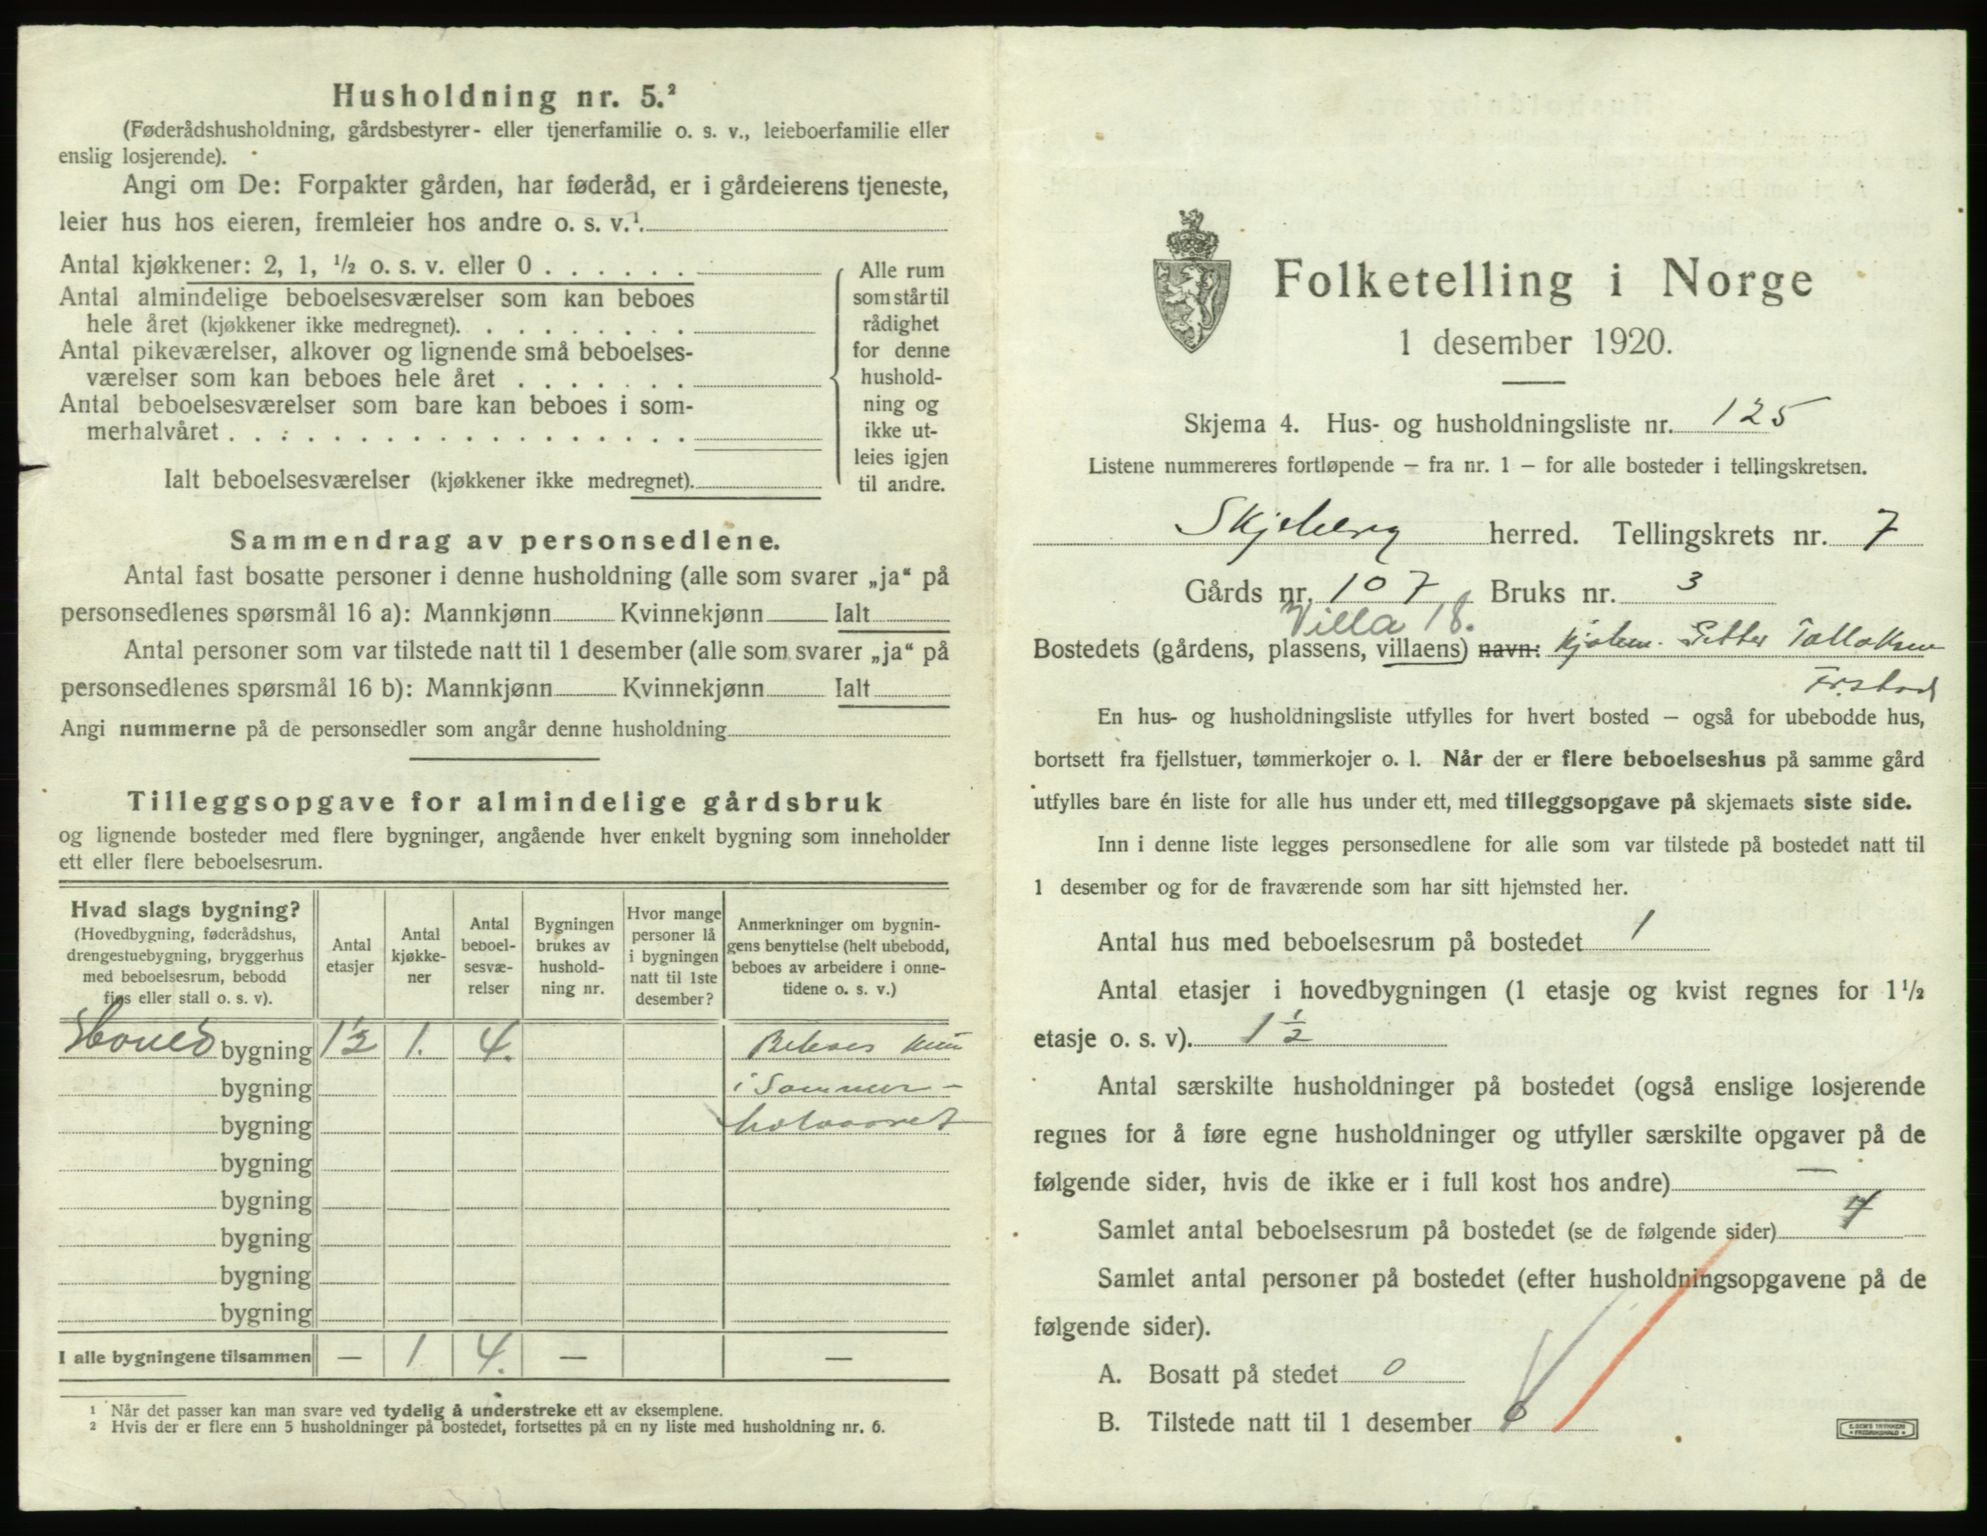 Husholdning nr. 5.²
(Føderådshusholdning, gårdsbestyrer- eller tjenerfamilie o. s. v., leieboerfamilie eller
enslig losjerende).
Angi om De: Forpakter gården, har føderåd, er i gårdeierens tjeneste,
leier hus hos eieren, fremleier hos andre o. s. v.¹.
Antal kjøkkener: 2, 1, ½ o. s. v. eller 0 . . . . . .
Antal almindelige beboelsesværelser som kan beboes
hele året (kjøkkener ikke medregnet). . . . . . . . .
Antal pikeværelser, alkover og lignende små beboelses-
værelser som kan beboes hele året . . . . . . .
Antal beboelsesværelser som bare kan beboes i som-
merhalvåret . . . . . . . . . . . . . . . . . .
Ialt beboelsesværelser (kjøkkener ikke medregnet).
Alle rum
som står til
rådighet
for denne
hushold-
ning og
ikke ut-
leies igjen
til andre.
Sammendrag av personsedlene.
Antal fast bosatte personer i denne husholdning (alle som svarer „ja“ på
personsedlenes spørsmål 16 a): Mannkjønn Kvinnekjønn Ialt
Antal personer som var tilstede natt til 1 desember (alle som svarer „ja“ på
personsedlenes spørsmål 16 b): Mannkjønn Kvinnekjønn Ialt
Angi nummerne på de personsedler som angår denne husholdning
Tilleggsopgave for almindelige gårdsbruk
og lignende bosteder med flere bygninger, angående hver enkelt bygning som inneholder
ett eller flere beboelsesrum.
Hvad slags bygning?
(Hovedbygning, føderådshus,
drengestuebygning, bryggerhus
med beboelsesrum, bebodd
fjøs eller stall o. s. v).
Antal
etasjer
Antal
kjøkke-
ner
Antal
beboel-
sesvæ-
relser
Bygningen
brukes av
hushold-
ning nr.
Hvor mange
personer lå
i bygningen
natt til 1ste
desember?
Anmerkninger om bygnin-
gens benyttelse (helt ubebodd,
beboes av arbeidere i onne-
tidene o. s. v.)
Hoved bygning 1½ 1. 4. Beboes kun
bygning i Sommer-
bygning halvaaret
bygning
bygning
bygning
bygning
bygning
I alle bygningene tilsammen — 1 4. — —
¹ Når det passer kan man svare ved tydelig å understreke ett av eksemplene.
² Hvis der er flere enn 5 husholdninger på bostedet, fortsettes på en ny liste med husholdning nr. 6.
Folketelling i Norge
1 desember 1920.
Skjema 4. Hus- og husholdningsliste nr. 125
Listene nummereres fortløpende – fra nr. 1 – for alle bosteder i tellingskretsen.
Skjeberg herred. Tellingskrets nr. 7
Gårds nr. 107 Bruks nr. 3
Villa 18.
Bostedets (gårdens, plassens, villaens) navn: Petter Tollaksen
Fr.stad
En hus- og husholdningsliste utfylles for hvert bosted – også for ubebodde hus,
bortsett fra fjellstuer, tømmerkojer o. l. Når der er flere beboelseshus på samme gård
utfylles bare én liste for alle hus under ett, med tilleggsopgave på skjemaets siste side.
Inn i denne liste legges personsedlene for alle som var tilstede på bostedet natt til
1 desember og for de fraværende som har sitt hjemsted her.
Antal hus med beboelsesrum på bostedet 1
Antal etasjer i hovedbygningen (1 etasje og kvist regnes for 1½
etasje o. s. v). 1½
Antal særskilte husholdninger på bostedet (også enslige losjerende
regnes for å føre egne husholdninger og utfyller særskilte opgaver på de
følgende sider, hvis de ikke er i full kost hos andre) —
Samlet antal beboelsesrum på bostedet (se de følgende sider) 4
Samlet antal personer på bostedet (efter husholdningsopgavene på de
følgende sider).
A. Bosatt på stedet 0
B. Tilstede natt til 1 desember 0